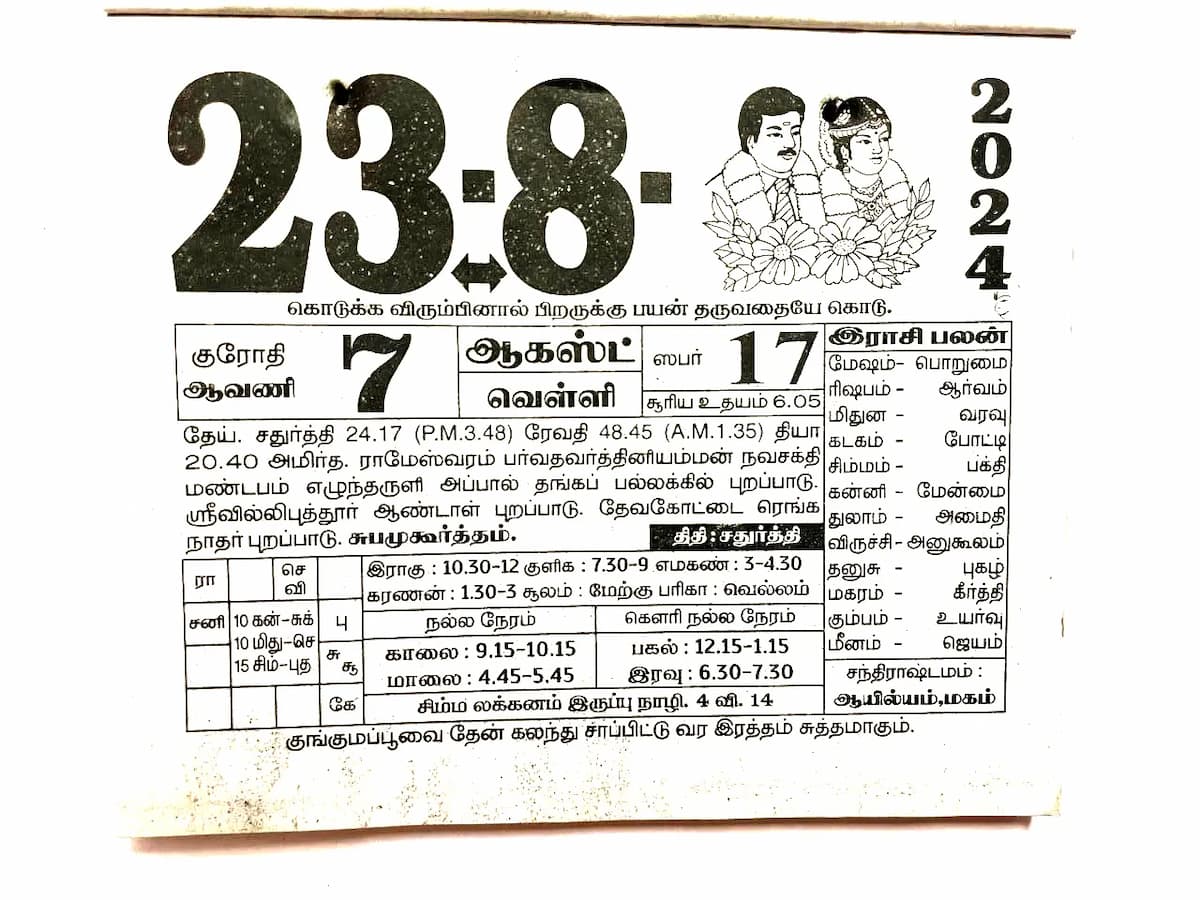 23-8-
2024
கொடுக்க விரும்பினால் பிறருக்கு பயன் தருவதையே கொடு.
குரோதி
ஆவணி
7
ஆகஸ்ட்
வெள்ளி
ஸபர் 17
சூரிய உதயம் 6.05
தேய். சதுர்த்தி 24.17 (P.M.3.48) ரேவதி 48.45 (A.M.1.35) தியா
20.40 அமிர்த. ராமேஸ்வரம் பர்வதவர்த்தினியம்மன் நவசக்தி
மண்டபம் எழுந்தருளி அப்பால் தங்கப் பல்லக்கில் புறப்பாடு.
ஸ்ரீவில்லிபுத்தூர் ஆண்டாள் புறப்பாடு. தேவகோட்டை ரெங்க
நாதர் புறப்பாடு. சுபமுகூர்த்தம்.
திதி : சதுர்த்தி
இராசி பலன்
மேஷம்- பொறுமை
ரிஷபம் - ஆர்வம்
மிதுன - வரவு
கடகம் - போட்டி
சிம்மம் - பக்தி
கன்னி - மேன்மை
துலாம் - அமைதி
விருச்சி- அனுகூலம்
தனுசு - புகழ்
மகரம் - கீர்த்தி
கும்பம் - உயர்வு
மீனம் - ஜெயம்
சந்திராஷ்டமம் :
ஆயில்யம்,மகம்
ரா
செ
வி
சனி
10 கன்-சுக்
10 மிது-செ
15 சிம்-புத
பு
சு
சூ
கே
இராகு : 10.30-12 குளிக : 7.30-9 எமகண் : 3-4.30
கரணன் : 1.30-3 சூலம் : மேற்கு பரிகா : வெல்லம்
நல்ல நேரம்
காலை : 9.15-10.15
மாலை : 4.45-5.45
கௌரி நல்ல நேரம்
பகல் : 12.15-1.15
இரவு : 6.30-7.30
சிம்ம லக்கனம் இருப்பு நாழி. 4 வி. 14
குங்குமப்பூவை தேன் கலந்து சாப்பிட்டு வர இரத்தம் சுத்தமாகும்.